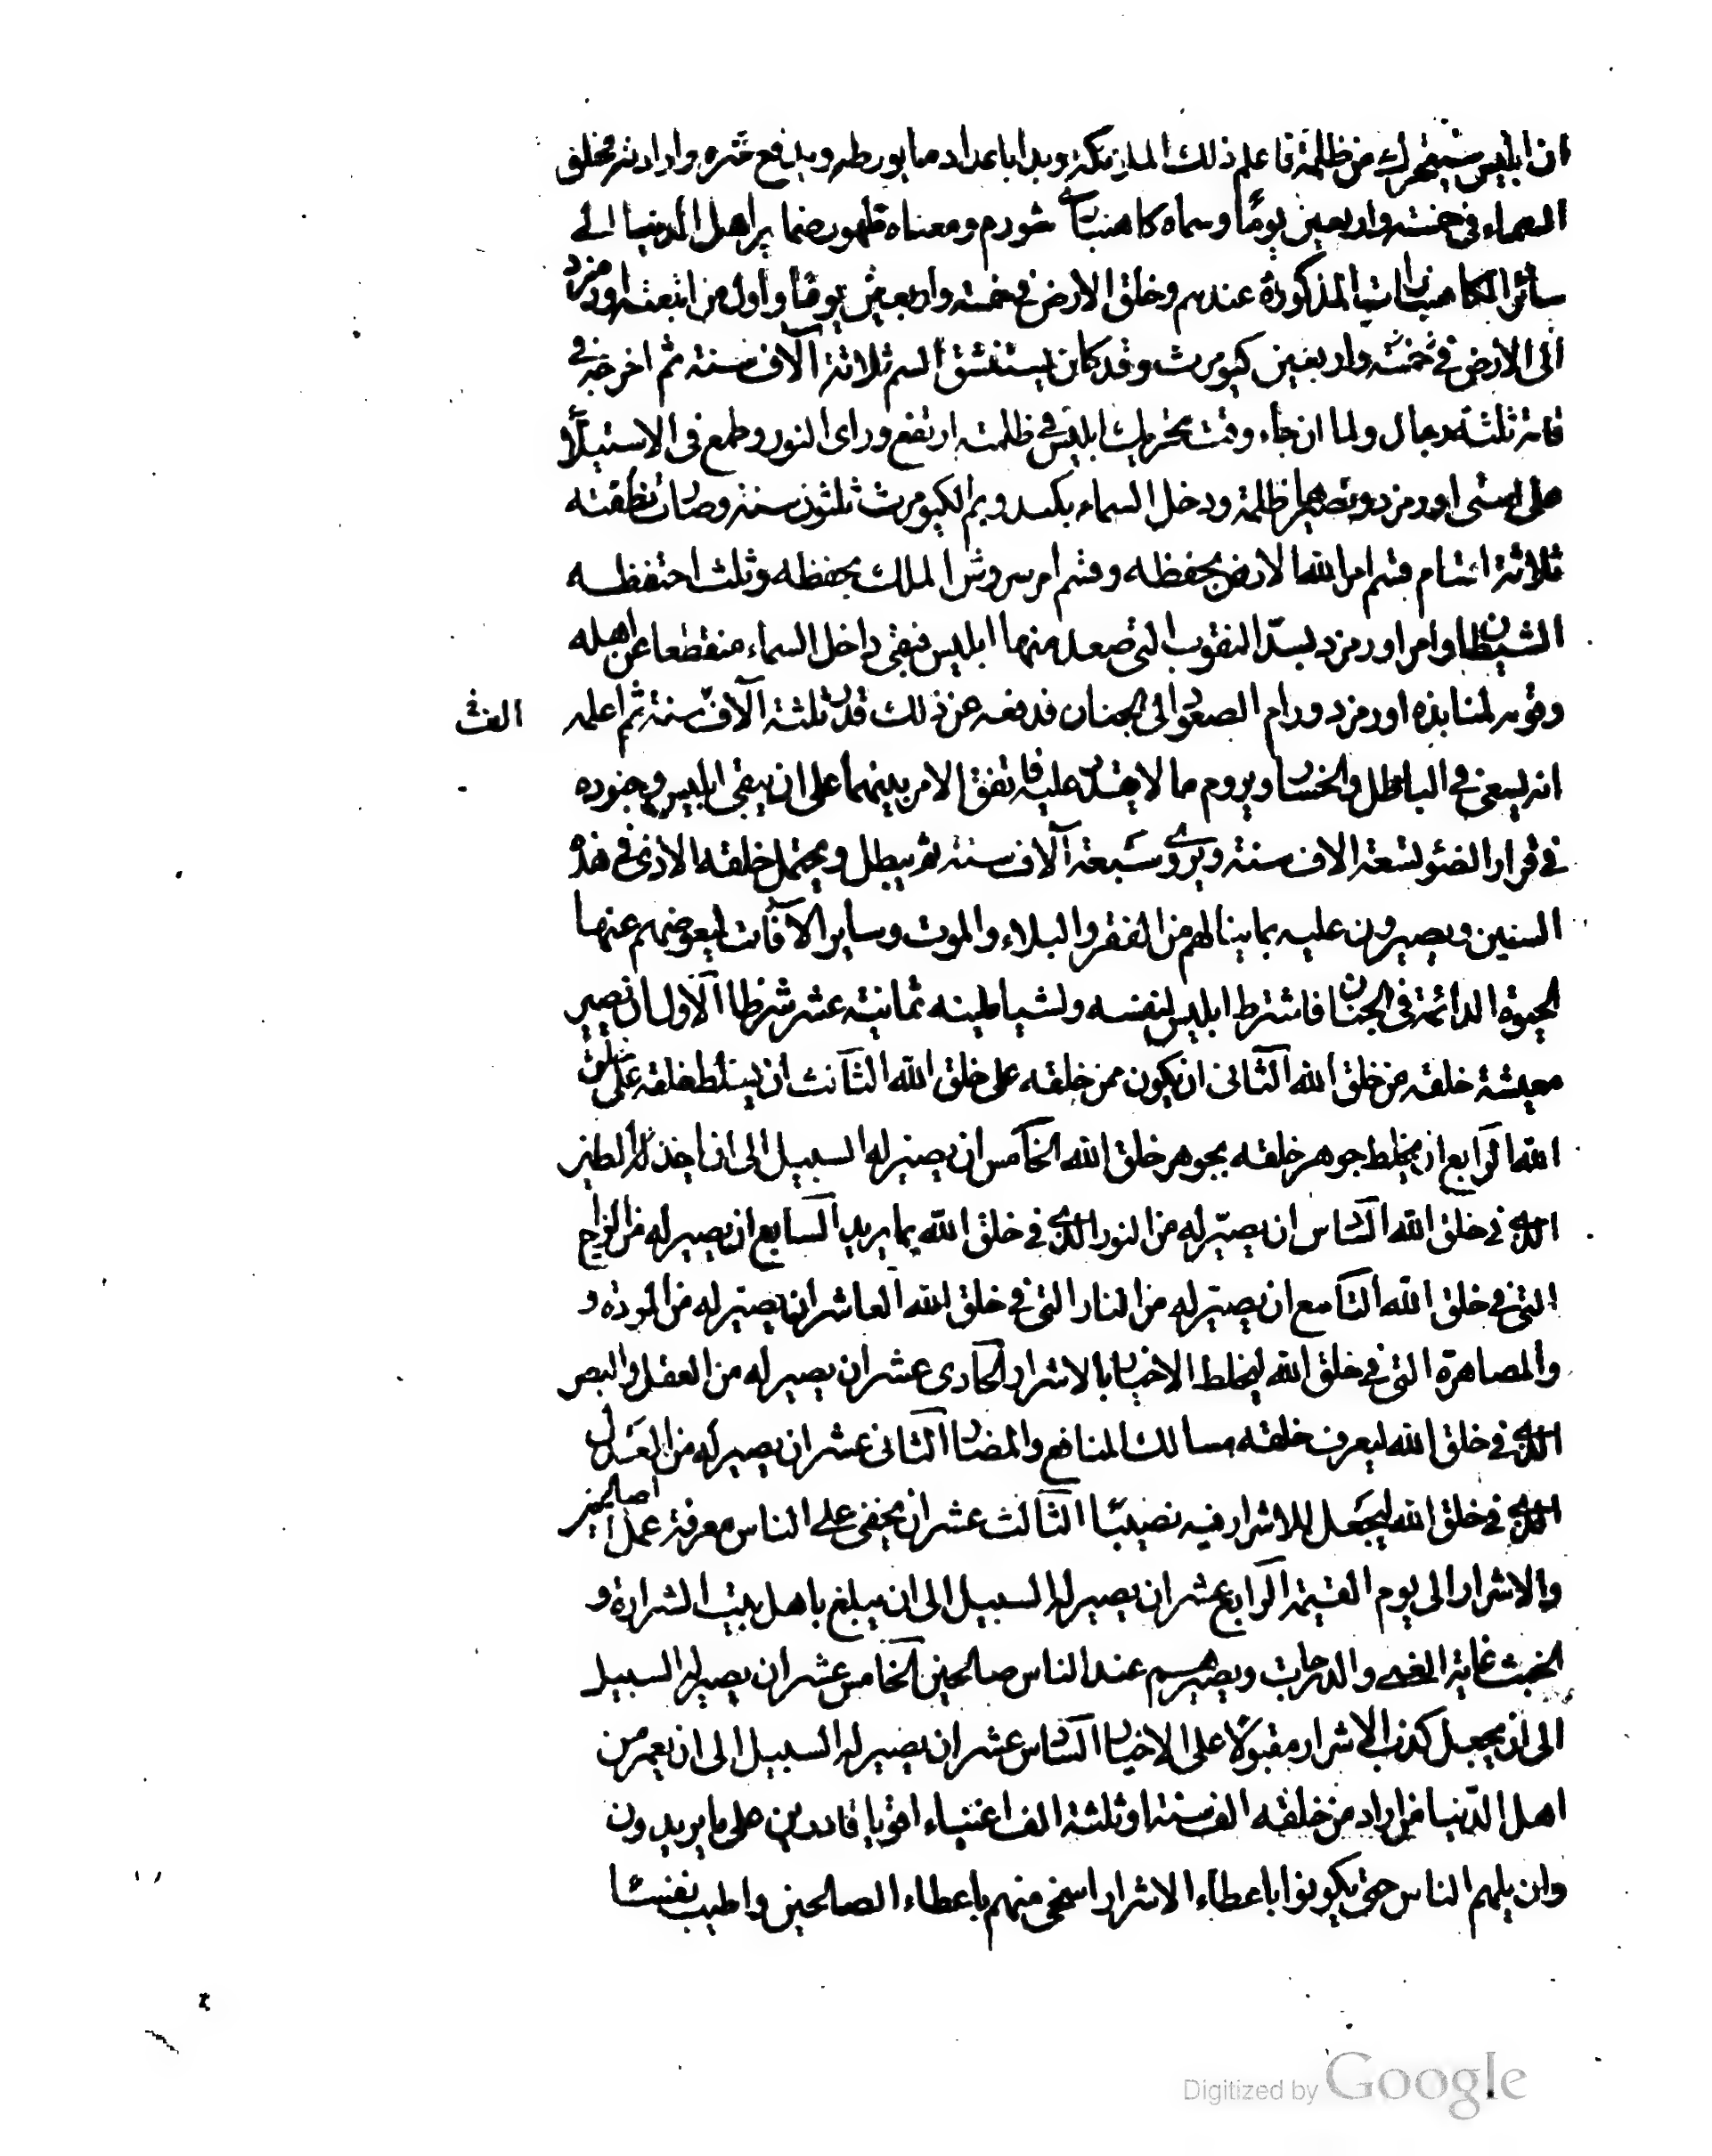 ان ابليس سيتحرك من ظلمة فاعلم ذلك الملائكة وبدا باعداد ما يورطه ويدفع شره وارادته فخلق
السماء في خمسة واربعين يومًا وسماه كاهنبات شورم ومعناه ظهور ضماير اهل الدنيا الى
سائر الكاهنبارات المذكورة عندهم وخلق الارض في خمسة واربعين يومًا واول من انبعثه اورمزد
الى الارض في خمسة واربعين كيومرث وقد كان يستنشق النسم ثلاثة آلاف سنة ثم اخرجه في
قامة ثلثة رجال ولما ان جاء وقت تحريك ابليس في ظلمته ارتفع وراى النور وطمع في الاستيلاء
على اورمزد وتصييرها ظلمة ودخل السماء يكيد ويم لكيومرث ثلثون سنة وصارت نطفته
ثلاثة اقسام قسم امر الله الارض بحفظه وقسم امر سروش الملك بحفظه وثلث احتفظه
الشيطان وامر اورمزد بسدّ النقوب التي صعد منها ابليس فبقى داخل السماء منقطعا عن اهله
وقوته لمنابذه اورمزد ورام الصعود الى الجنان فدفعه عن ذلك قدر ثلثة آلاف سنة ثم اعلمه
انه يسعى في الباطل والخسار ويروم ما لا يقدر عليه فاتفق الامر بينهما على ان يبقى ابليس وجنوده
في قرار الضوء تسعة الاف سنة ويروى سبعة آلاف سنة ثم يبطل ويحتمل خلقه الاذى في هذه
السنين ويصبرون عليه بما ينالهم من الفقر والبلاء والموت وساير الآفات ليعوضهم عنها
الحيوة الدائمة في الجنان فاشترط ابليس لنفسه ولشياطينه ثمانية عشر شرطا الاول ان تصير
معيشة خلقه من خلق الله الثانى ان يكون ممر خلقه على خلق الله الثالث ان يسلط خلقه على خلق
الله الرابع ان يخلط جوهر خلقه بجوهر خلق الله الخامس ان يصير له السبيل الى ان ياخذ الطين
الذى في خلق الله السادس ان يصيّر له من النور الذى في خلق الله بما يريد السابع ان يصير له من الرياح
التى في خلق الله التاسع ان يصيّر له من النار التى في خلق الله العاشر ان يصيّر له من المودة و
والمصاهرة التى في خلق الله ليخلط الاخيار بالاشرار الحادى عشر ان يصير له من العقل والبصر
الذى في خلق الله ليعرف خلقه مسالك المنافع والمضار الثانى عشر ان يصير له من العدل
الذى في خلق الله ليجعل للاشرار فيه نصيبًا الثالث عشر ان يخفى على الناس معرفة عمل الصالحين
والاشرار الى يوم القيمة الرابع عشر ان يصير له السبيل الى ان يبلغ باهل بيت الشرارة و
الخبث غاية الغنى والدرجات ويصيرهم عند الناس صالحين الخامس عشر ان يصير له السبيل
الى ان يجعل كذب الاشرار مقبولًا على الاخيار السادس عشر ان يصير له السبيل الى ان يعمر من
اهل الدّنيا من اراد من خلقه الف سنة او ثلثة الف اغنياء اقويا قادرين على ما يريدون
وان يلهم الناس حتى يكونوا باعطاء الاشرار اسخى منهم باعطاء الصالحين واطيب نفسًا
Digitized by Google